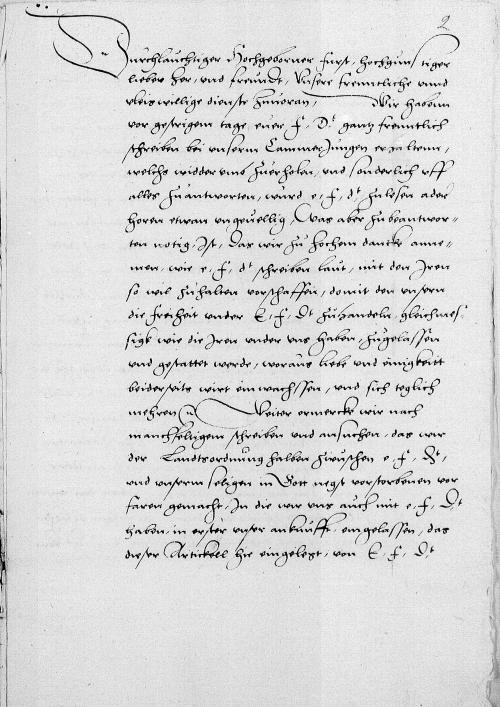 2
Durchlauchtiger Hochgeborner furst, hochgunstiger
lieber her, und freundt, Unsere freuntliche unnd
vleis willige dienste zuuoran, Wir habenn
vor gestrigem tage, euer f. D.t gantz freuntlich
schreiben bei unserm Cammer Jungen erhaltenn,
welchs widder umb zuerholen, und sonderlich uff
alles zuantworten, wurd e. f. d.t zulesen ader
horen etwan ungeuellig, Was aber zubeantwor-
ten notig, Ist, das wir zu hochem dancke anne-
men, wie e. f. d.t schreiben laut, mit den Iren
so wil zuhalten vorschaffen, domit den unsern
die freiheit under E. f. D.t zuhandeln, gleichmes-
sigk wie die Iren under uns haben, zugelassen
und gestattet werde, woraus liebe und einigkeitt
beiderseits wirt einwachssen, und sich teglich
mehren Weiter vermercke wir nach
manchfeltigem schreiben und ansuchen, das wir
der Landtsordnung halben zwuschen e. f. D.t,
und unserm seligen in Gott negst vorstorbenen vor
faren gemacht, In die wir uns auch mit e. f. D.t
haben, in erster unser ankunfft, eingelassen, das
dieser Artickell hie eingelegt, von E. f. D.t